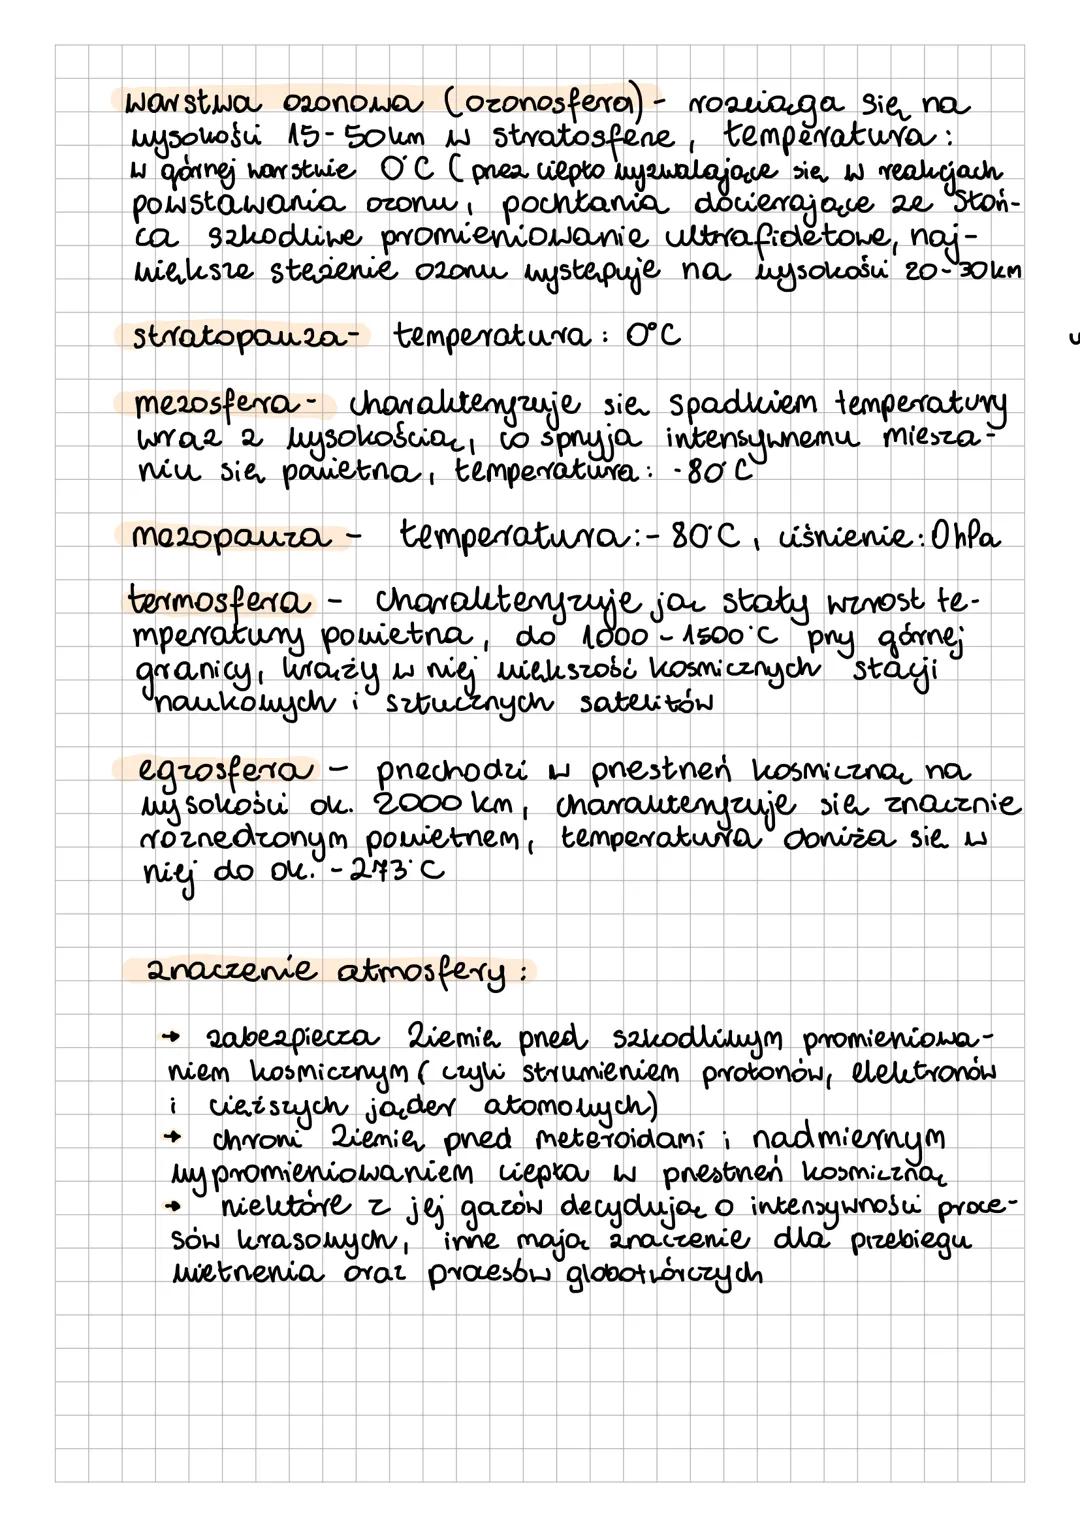 warstwa ozonowa (ozonosfera) - rozciąga się na
wysokości 15-50km w stratosferze, temperatura:
w górnej warstwie 0°C (przez ciepło wyzwalające się w reakcjach
powstawania ozonu, pochłania docierające ze Słoń-
ca szkodliwe promieniowanie ultrafioletowe, naj-
większe stężenie ozonu występuje na wysokości 20-30km
stratopauza- temperatura: 0°C
mezosfera- charakteryzuje się spadkiem temperatury
wraz z wysokością, co sprzyja intensywnemu miesza-
niu się powietrza, temperatura: -80°C
mezopauza - temperatura:- 80°C, ciśnienie: 0hPa
termosfera - charakteryzuje ją stały wzrost te-
mperatury powietrza, do 1000-1500°C przy górnej
granicy, krąży w niej większość kosmicznych stacji
naukowych i sztucznych satelitów
egzosfera - przechodzi w przestrzeń kosmiczną na
wysokości ok. 2000 km, charakteryzuje się znacznie
rozrzedzonym powietrzem, temperatura obniża się w
niej do ok. -273°C
znaczenie atmosfery:
→ zabezpiecza Ziemię przed szkodliwym promieniowa-
niem kosmicznym (czyli strumieniem protonów, elektronów
i cięższych jąder atomowych)
→ chroni Ziemię przed meteroidami i nadmiernym
wypromieniowaniem ciepła w przestrzeń kosmiczną
→ niektóre z jej gazów decydują o intensywności proce-
sów krasowych, inne mają znaczenie dla przebiegu
wietrzenia oraz procesów glebotwórczych